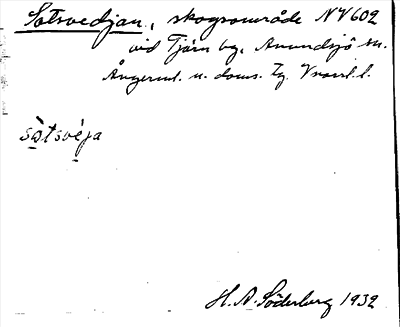 Sotsvedjan, skogsområde NV 602
vid Tjärn by, Anundsjö sn.
Ångerml. n. doms. Tg. Vrml. l.
sòtsvéja
H. A. Söderberg 1932